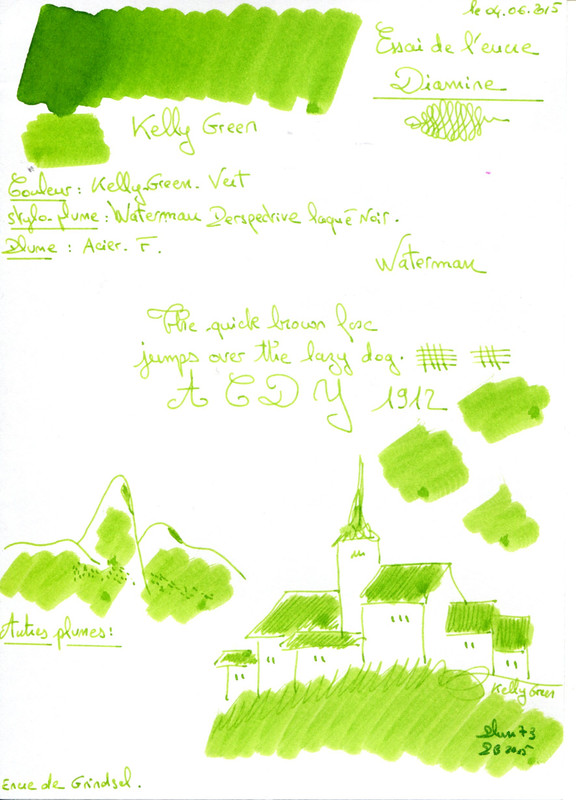 le 04.06.2015
Essai de l'encre
Diamine
Kelly Green
Couleur : Kelly-Green. Vert
Stylo-plume : Waterman Perspective laqué Noir.
Plume : Acier. F.
Waterman
The quick brown fox
jumps over the lazy dog.
A C D Y 1912
Autres plumes :
Kelly Green
2015
Encre de Grindsel.